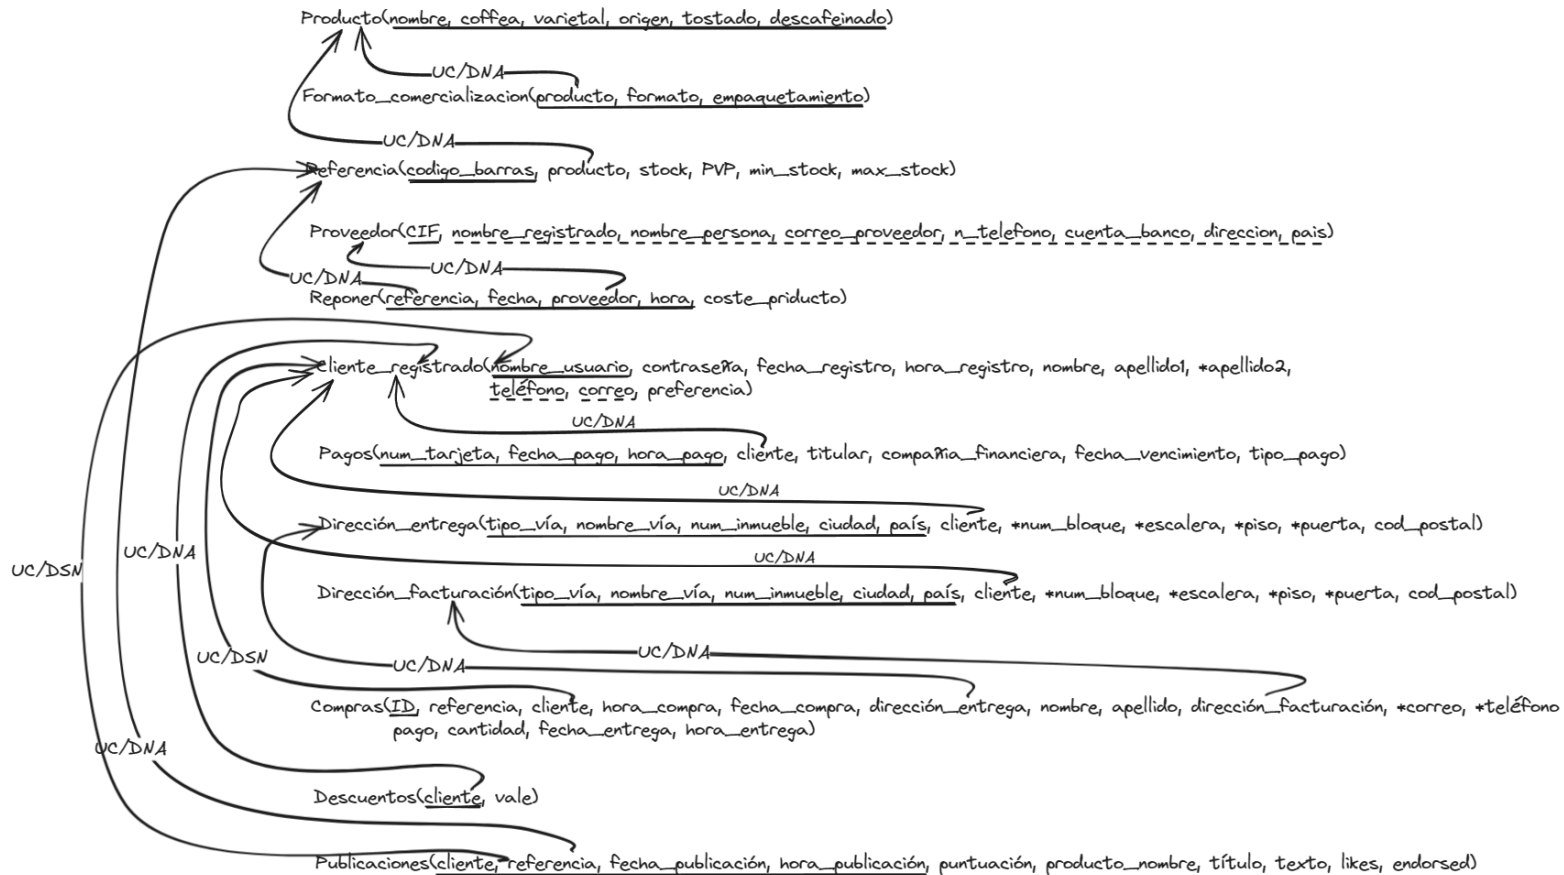 Producto(nombre, coffea, varietal, origen, tostado, descafeinado)
UC/DNA
Formato_comercializacion(producto, formato, empaquetamiento)
UC/DNA
Referencia(codigo_barras, producto, stock, PVP, min_stock, max_stock)
Proveedor(CIF, nombre_registrado, nombre_persona, correo_proveedor, n_telefono, cuenta_banco, direccion, pais)
UC/DNA
UC/DNA
Reponer(referencia, fecha, proveedor, hora, coste_priducto)
Cliente_registrado(nombre_usuario, contraseña, fecha_registro, hora_registro, nombre, apellido1, *apellido2,
teléfono, correo, preferencia)
UC/DNA
Pagos(num_tarjeta, fecha_pago, hora_pago, cliente, titular, compañia_financiera, fecha_vencimiento, tipo_pago)
UC/DNA
Dirección_entrega(tipo_vía, nombre_vía, num_inmueble, ciudad, país, cliente, *num_bloque, *escalera, *piso, *puerta, cod_postal)
UC/DNA
UC/DNA
UC/DSN
Dirección_facturación(tipo_vía, nombre_vía, num_inmueble, ciudad, país, cliente, *num_bloque, *escalera, *piso, *puerta, cod_postal)
UC/DNA
UC/DSN
UC/DNA
Compras(ID, referencia, cliente, hora_compra, fecha_compra, dirección_entrega, nombre, apellido, dirección_facturación, *correo, *teléfono
pago, cantidad, fecha_entrega, hora_entrega)
UC/DNA
Descuentos(cliente, vale)
Publicaciones(cliente, referencia, fecha_publicación, hora_publicación, puntuación, producto_nombre, título, texto, likes, endorsed)